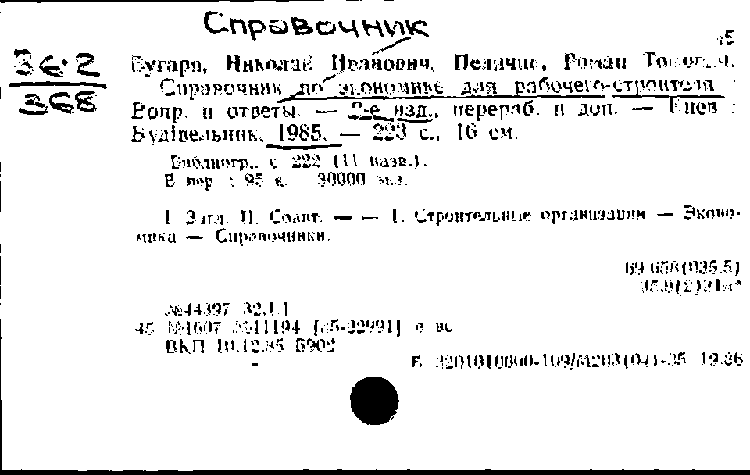 Справочник
36.2
368
Бугара, Николай Иванович, Пеличис, Роман
Справочник по экономике для рабочего-строителя :
Вопр. и ответы. — 2-е изд., перераб. и доп. — Киев :
Будівельник, 1985. — 223 с., 16 см.
Библиогр.: с. 222 (11 назв.).
В пер. : 95 к. 30000 экз.
I. Загл. II. Соавт. — — 1. Строительные организации — Эконо-
мика — Справочники.
№44397 32.1.1
45 №1607 №11194 [85-22991] п вс
ВКП 10.12.85 Б902